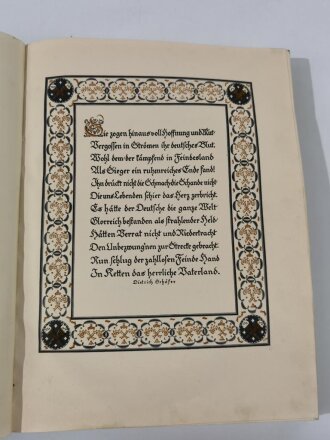 Sie zogen hinaus voll Hoffnung und Mut
Vergossen in Strömen ihr deutsches Blut.
Wohl dem der kämpfend in Feindesland
Als Sieger ein ruhmreiches Ende fand!
Ihn drückt nicht die Schmach, die Schande nicht
Die uns Lebenden schier das Herz zerbricht.
Es hätte der Deutsche die ganze Welt
Glorreich bestanden als strahlender Held
Hätten Verrat nicht und Niedertracht
Den Unbezwung'nen zur Strecke gebracht.
Nun schlug der zahllosen Feinde Hand
In Ketten das herrliche Vaterland.
Dietrich Schäfer